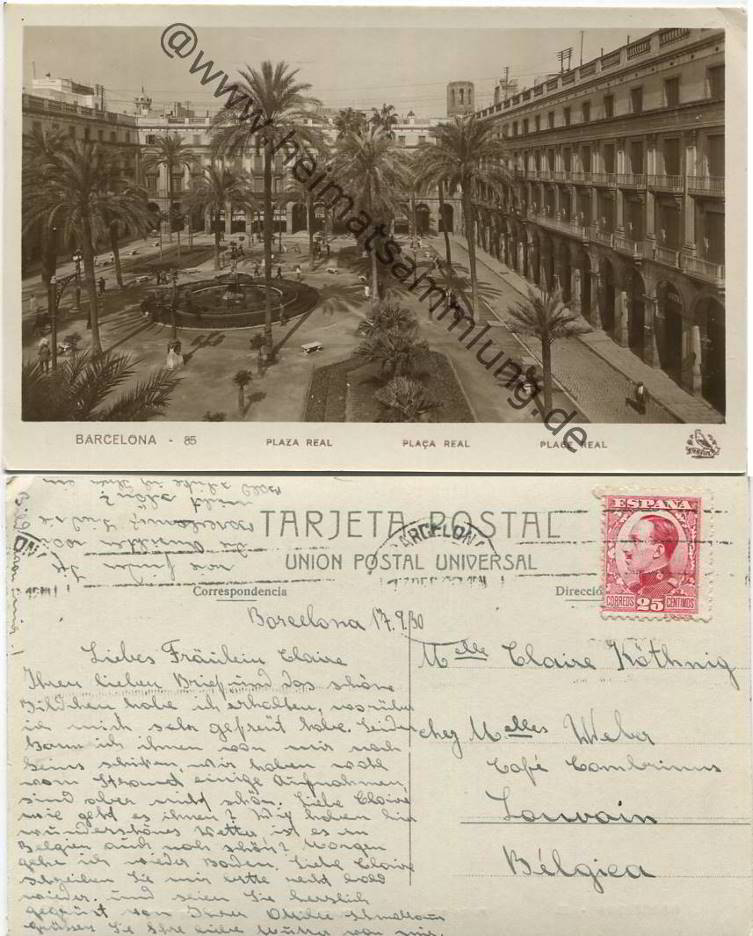 @www.heimatsammlung.de
BARCELONA - 85 PLAZA REAL PLAÇA REAL PLACE REAL
TARJETA POSTAL
UNION POSTAL UNIVERSAL
Correspondencia
Direcció
BARCELONA
ESPAÑA
CORREOS 25 CENTIMOS
Barcelona 17.9.30
Liebes Fräulein Claire
Ihren lieben Brief und das schöne
Bildchen habe ich erhalten, worüber
ich mich sehr gefreut habe. Leider
kann ich ihnen von mir noch
keins schiken, wir haben wohl
vom Strand einige Aufnahmen,
sind aber nicht schön. Liebe Claire
wie geht es ihnen? Wir haben hier
wunderschönes Wetter, ist es in
Belgien auch noch schön? Morgen
gehe ich wieder baden. Liebe Claire
schreiben Sie mir bitte recht bald
wieder. und seien Sie herzlich
gegrüsst von Ihrer
grüssen Sie Ihre liebe Mutter von mir.
Melle Claire Köthnig
chez Melles Weber
Café Cambrinus
Louvain
Bélgica